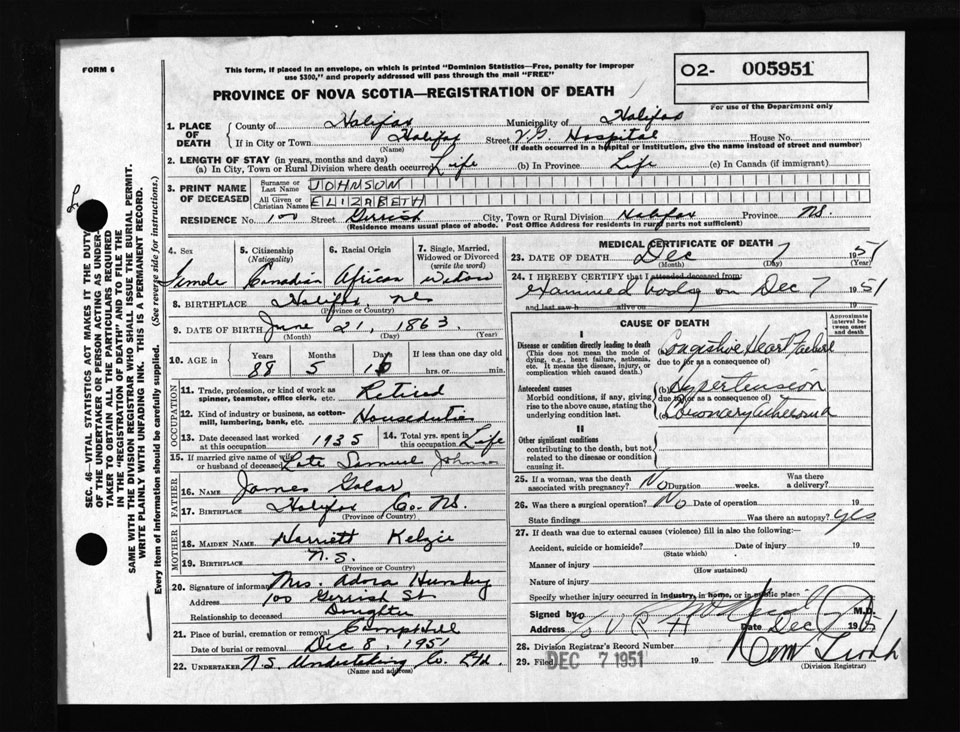 FORM 6
This form, if placed in an envelope, on which is printed "Dominion Statistics—Free, penalty for improper
use $300," and properly addressed will pass through the mail "FREE"
O2- 005951
For use of the Department only
PROVINCE OF NOVA SCOTIA—REGISTRATION OF DEATH
1. PLACE OF DEATH
County of Halifax Municipality of Halifax
If in City or Town Halifax Street V.G. Hospital House No.
(Name) (If death occurred in a hospital or Institution, give the name instead of street and number)
2. LENGTH OF STAY (in years, months and days)
(a) In City, Town or Rural Division where death occurred Life (b) In Province Life (c) In Canada (if immigrant)
3. PRINT NAME OF DECEASED
Surname or Last Name JOHNSON
All Given or Christian Names ELIZABETH
RESIDENCE No. 100 Street Gerrish City, Town or Rural Division Halifax Province N.S.
(Residence means usual place of abode. Post Office Address for residents in rural parts not sufficient)
4. Sex
Female
5. Citizenship
(Nationality)
Canadian
6. Racial Origin
African
7. Single, Married, Widowed or Divorced
(write the word)
Widow
8. BIRTHPLACE Halifax, NS
(Province or Country)
9. DATE OF BIRTH June 21, 1863
(Month) (Day) (Year)
10. AGE IN Years Months Days If less than one day old
88 5 16 hrs. or min.
OCCUPATION
11. Trade, profession, or kind of work as spinner, teamster, office clerk, etc. Retired
12. Kind of industry or business, as cotton-mill, lumbering, bank, etc. Houseduties
13. Date deceased last worked at this occupation 1935
14. Total yrs. spent in this occupation Life
15. If married give name of wife or husband of deceased Late Samuel Johnson
FATHER
16. NAME James Golar
17. BIRTHPLACE Halifax Co. NS.
(Province of Country)
MOTHER
18. MAIDEN NAME Harriett Kelzie
19. BIRTHPLACE N.S.
(Province or Country)
20. Signature of informant Mrs. Adora
Address 100 Gerrish St
Relationship to deceased Daughter
21. Place of burial, cremation or removal Camphill
Date of burial or removal Dec 8, 1951
22. UNDERTAKER N.S. Undertaking Co. Ltd.
(Name and address)
MEDICAL CERTIFICATE OF DEATH
23. DATE OF DEATH Dec 7 1951
(Month) (Day) (Year)
24. I HEREBY CERTIFY that I attended deceased from:
examined body on Dec 7 1951
and last saw h alive on 19
CAUSE OF DEATH
Approximate interval between onset and death
I
Disease or condition directly leading to death
(This does not mean the mode of dying, e.g., heart failure, asthenia, etc. It means the disease, injury, or complication which caused death.)
(a) Congestive Heart Failure
due to (or as a consequence of)
Antecedent causes
Morbid conditions, if any, giving rise to the above cause, stating the underlying condition last.
(b) Hypertension
due to (or as a consequence of)
(c) Coronary
II
Other significant conditions
contributing to the death, but not related to the disease or condition causing it.
25. If a woman, was the death associated with pregnancy? No Duration weeks. Was there a delivery?
26. Was there a surgical operation? No Date of operation 19
State findings Was there an autopsy? yes
27. If death was due to external causes (violence) fill in also the following:—
Accident, suicide or homicide? Date of injury 19
(State which)
Manner of injury
(How sustained)
Nature of injury
Specify whether injury occurred in industry, in home, or in public place
Signed by M.D.
Address Date Dec 7 1951
28. Division Registrar's Record Number
29. Filed DEC 7 1951 19
(Division Registrar)
SEC. 46—VITAL STATISTICS ACT MAKES IT THE DUTY
OF THE UNDERTAKER OR PERSON ACTING AS UNDER-
TAKER TO OBTAIN ALL THE PARTICULARS REQUIRED
IN THE "REGISTRATION OF DEATH" AND TO FILE THE
SAME WITH THE DIVISION REGISTRAR WHO SHALL ISSUE THE BURIAL PERMIT.
WRITE PLAINLY WITH UNFADING INK. THIS IS A PERMANENT RECORD.
Every item of information should be carefully supplied. (See reverse side for instructions.)